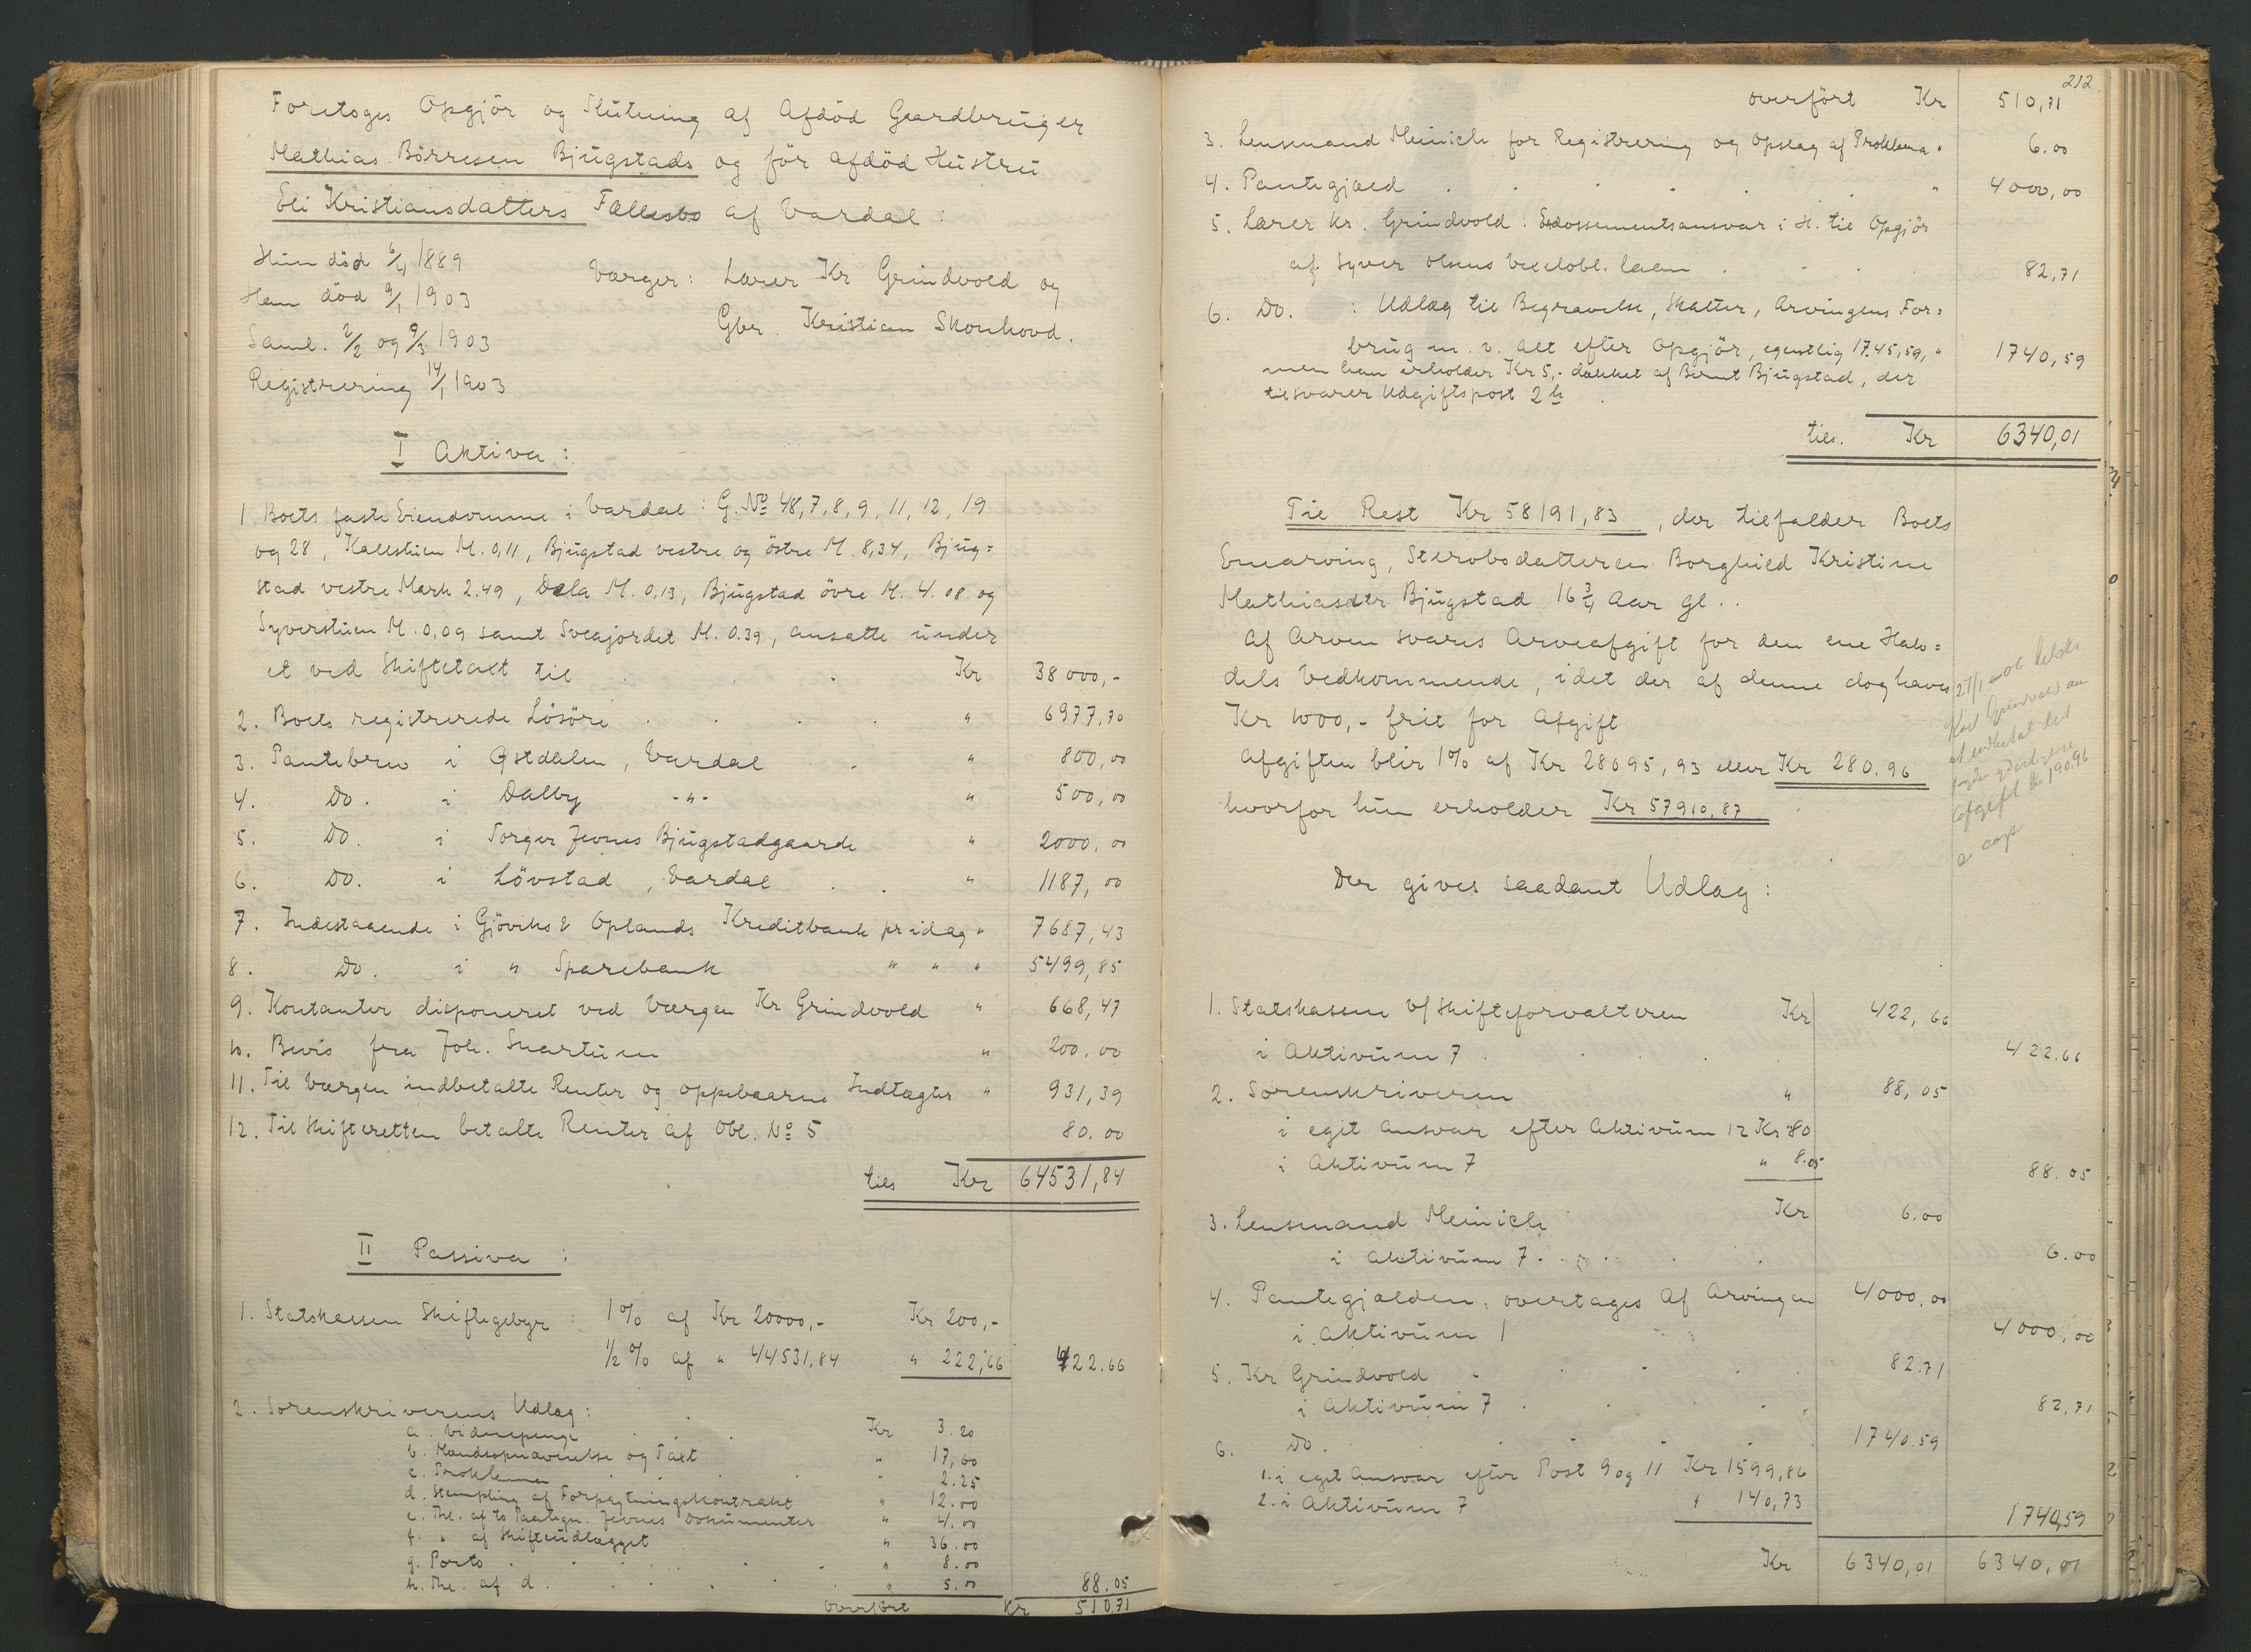 Foretoges Opgjör og Slutning af Afdöd Gaardbruger
Mathias Börresen Bjugstads og för afdöd Hustru
Eli Kristiansdatters Fællesbo af Vardal:
Hun död 6/4 1889
Han död 9/1 1903
Saml. 2/2 og 9/3 1903
Registrering 14/1 1903
Værger: Lærer Kr Grindvold og
Gbr. Kristian Skonhovd.
I Aktiva:
1. Boets faste Eiendomme i Vardal: G. No 48, 7, 8, 9, 11, 12, 19
og 28, Kallstuen M. 0,11, Bjugstad vestre og östre M. 8,34, Bjug=
stad vestre Mark 2.49, Dala M. 0,13, Bjugstad övre M. 4.08 og
Syverstuen M. 0,09 samt Sveajordet M. 0.39, ansatte under
et ved Skiftetaxt til Kr 38000,-
2. Boets registrerede Lösöre " 6977,70
3. Pantebrev i Østdalen, Vardal " 800,00
4. Do. i Dalby -"- " 500,00
5. Do. i Torger Jevnes Bjugstadgaarde " 2000,00
6. Do. i Lövstad, Vardal " 1187,00
7. Indestaaende i Gjöviks & Oplands Kreditbank pr idag " 7687,43
8. Do. i " Sparebank " " " 5499,85
9. Kontanter disponeret ved Værgen Kr Grindvold " 668,47
10. Bevis fra Joh. Snartum " 200.00
11. Til Værgen indbetalte Renter og oppebaarne Indtægter " 931,39
12. Til Skifteretten betalte Renter af Obl. No 5 80.00
tils Kr 64531,84
II Passiva:
1. Statskassen Skiftegebyr: 1% af Kr 20000,- Kr 200,-
1/2% af " 44531,84 " 222,66 422.66
2. Sorenskriverens Udlæg:
a. Vidnepenge Kr 3.20
b. Mandsopnævnelse og Taxt " 17,60
c. Proklama " 2.25
d. Stempling af Forpagtningskontrakt " 12.00
e. Thl. af to Jevnes Dokumenter " 4.00
f. " af Skifteudlægget " 36.00
g. Porto " 8.00
h. Thl. af d. " 5.00 88.05
overfört Kr 510.71
212.
overfört Kr 510,71
3. Lensmand Meinich for Registrering og Opslag af Proklama " 6.00
4. Pantegjæld " 4000,00
5. Lærer Kr. Grindvold: Endossementsansvar i H. til Opgjör
af Syver Olsens Vexelobl. laan 82,71
6. Do. : Udlæg til Begravelse, Skatter, Arvingens For=
brug m. v. alt efter Opgjör, egentlig 1745,59, " 1740,59
men han erholder Kr 5,- dækket af Bernt Bjugstad, der
tilsvarer Udgiftspost 2 h
tils. Kr 6340,01
Til Rest Kr 58191,83, der tilfalder Boets
Enearving, Stervbodatteren Borghild Kristine
Mathiasdtr Bjugstad 16 3/4 Aar gl..
Af Arven svares Arveafgift for den ene Halv=
dels Vedkommende, idet der af denne dog haves
Kr 1000,- frit for Afgift
Afgiften blir 1% af Kr 28095,93 eller Kr 280.96
hvorfor hun erholder Kr 57910,87
Der gives saadant Udlæg:
1. Statskassen v/ Skifteforvalteren Kr 422,66
i Aktivum 7 422.66
2. Sorenskriveren " 88,05
i eget Ansvar efter Aktivum 12 Kr 80
i Aktivum 7 " 8.05 88.05
3. Lensmand Meinich Kr 6.00
i Aktivum 7 6.00
4. Pantegjælden, overtages af Arvingen 4000,00
i Aktivum 1 4000,00
5. Kr Grindvold 82.71
i Aktivum 7 82,71
6. Do. 1740.59
1. i eget Ansvar efter Post 9 og 11 Kr 1599,86
2. i Aktivum 7 " 140,73 1740,59
Kr 6340,01 6340,01